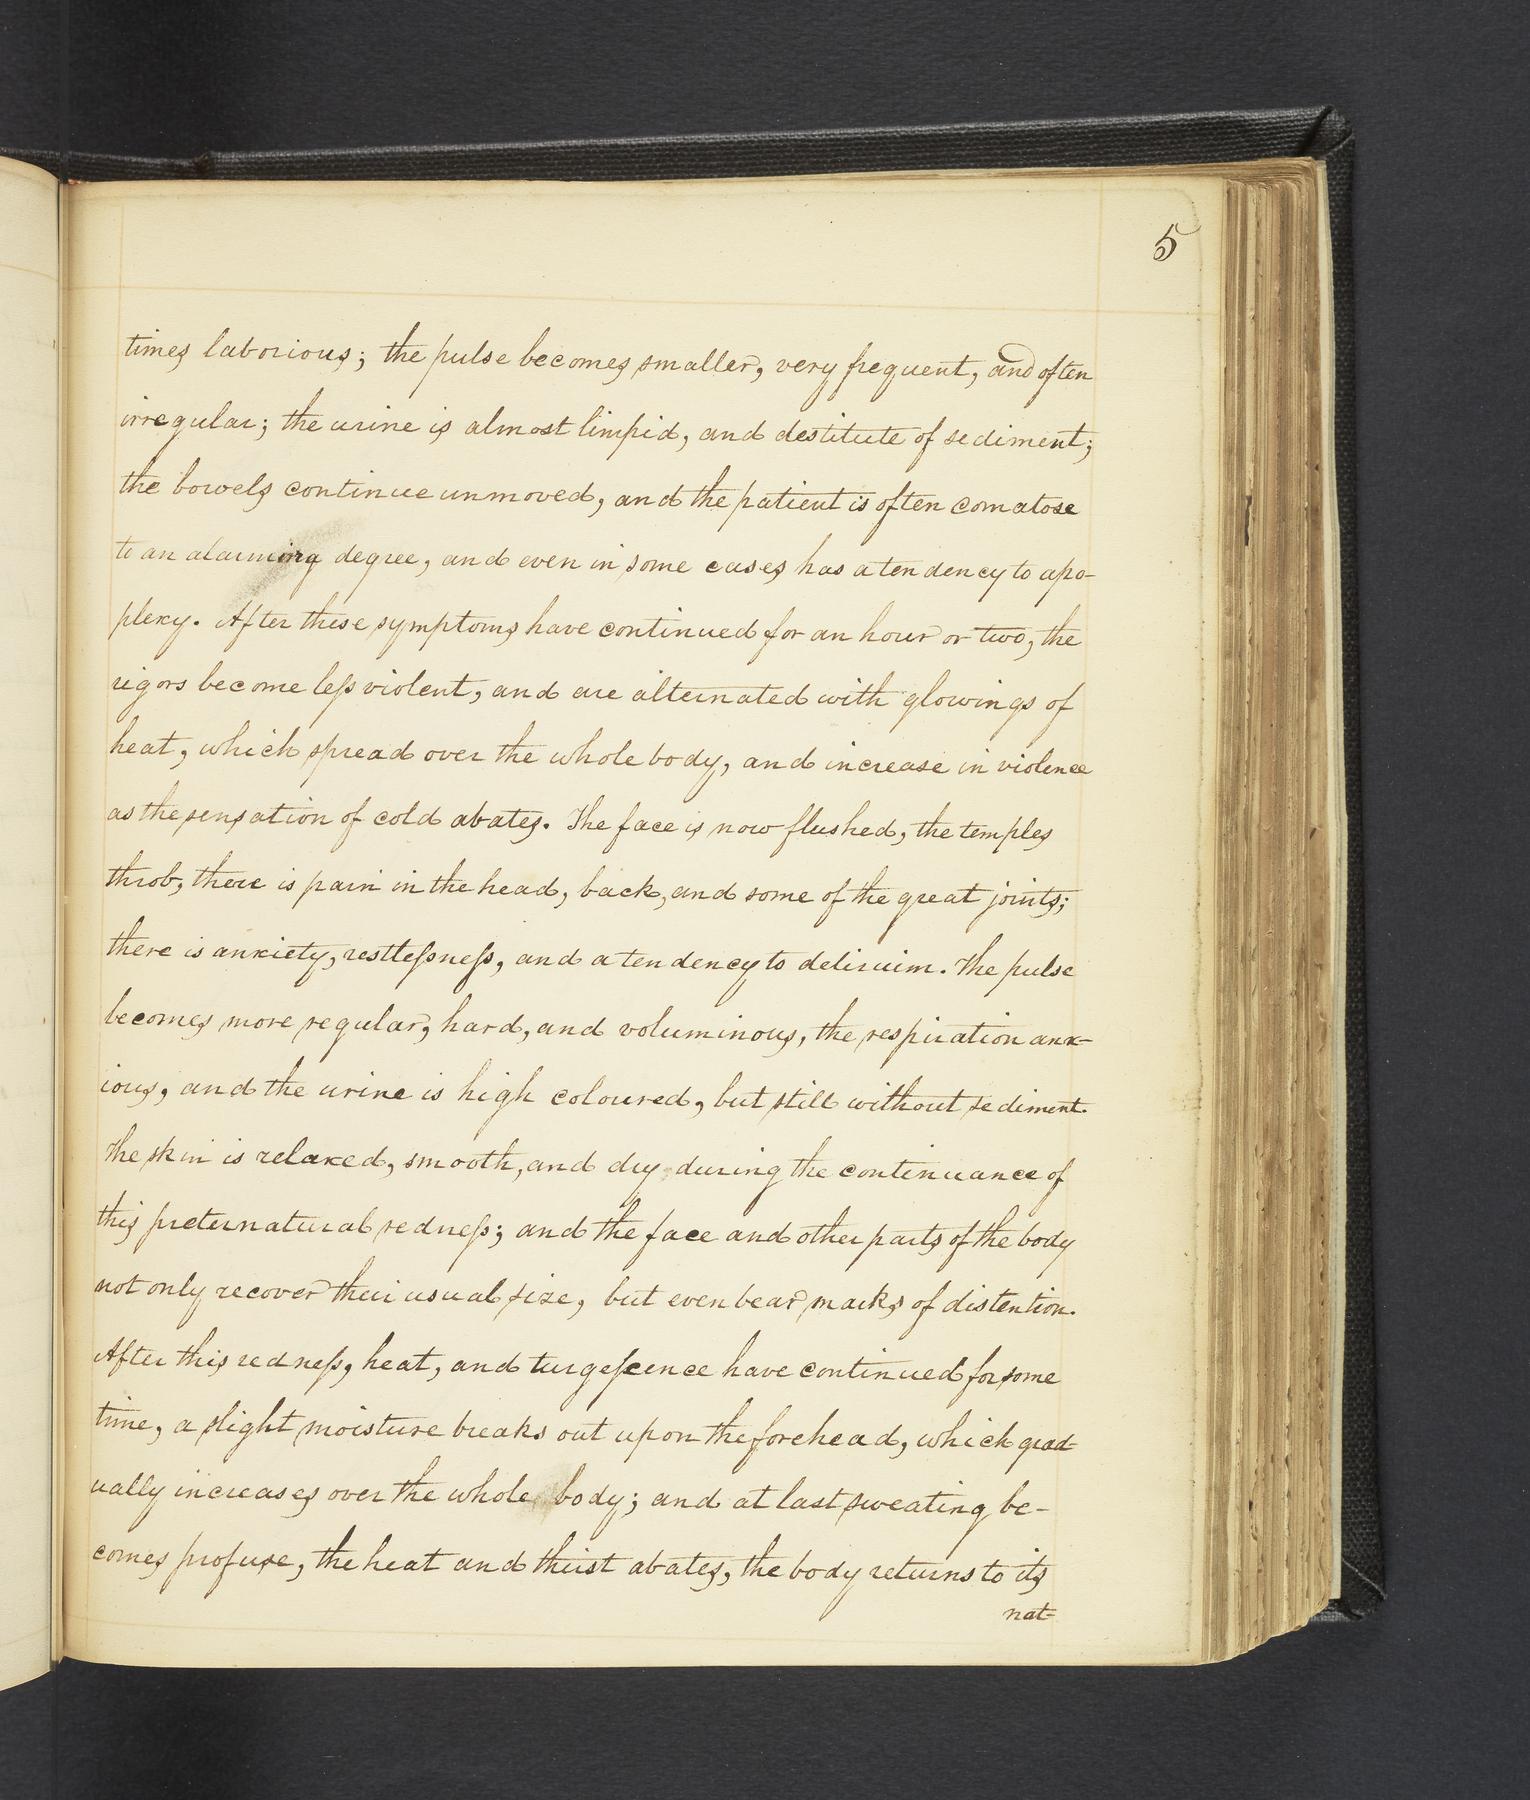 5
times laborious; the pulse becomes smaller, very frequent, and often
irregular; the urine is almost limpid, and destitute of sediment;
the bowels continue unmoved, and the patient is often comatose
to an alarming degree, and even in some cases has a tendency to apo-
plexy. After these symptoms have continued for an hour or two, the
rigors become leſs violent, and are alternated with glowings of
heat, which spread over the whole body, and increase in violence
as the sensation of cold abates. The face is now flushed, the temples
throb, there is pain in the head, back, and some of the great joints;
there is anxiety, restleſsneſs, and a tendency to delirium. The pulse
becomes more regular, hard, and voluminous, the respiration anx-
ious, and the urine is high coloured, but still without sediment.
The skin is relaxed, smooth, and dry during the continuance of
this preternatural redneſs; and the face and other parts of the body
not only recover their usual size, but even bear marks of distention.
After this redneſs, heat, and turgeſcence have continued for some
time, a slight moisture breaks out upon the forehead, which grad-
ually increases over the whole body; and at last sweating be-
comes profuse, the heat and thirst abates, the body returns to its
nat-